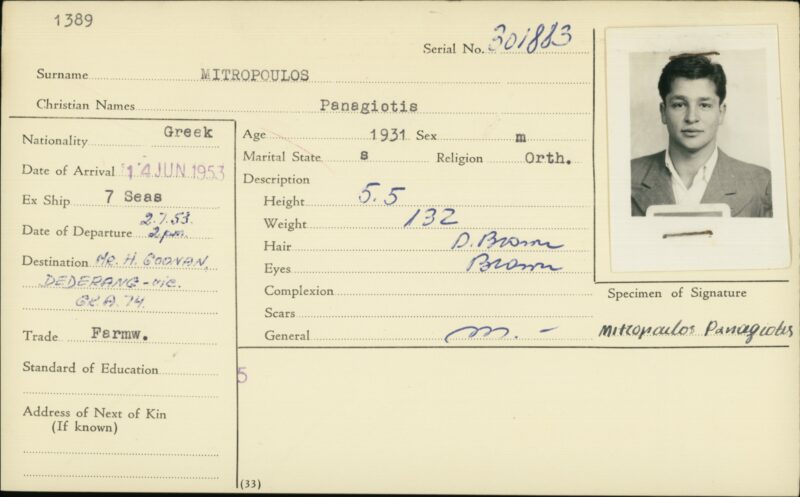 1389
Serial No. 301883
Surname MITROPOULOS
Christian Names Panagiotis
Nationality Greek
Date of Arrival 14 JUN 1953
Ex Ship 7 Seas
Date of Departure 2.7.53. 2pm.
Destination MR. H. COONAN,
DEDERANG - vic.
Trade Farmw.
Standard of Education
Address of Next of Kin
(If known)
Age 1931 Sex m
Marital State s Religion Orth.
Description
Height 5.5
Weight 132
Hair D. Brown
Eyes Brown
Complexion
Scars
General m. -
5
(33)
Specimen of Signature
Mitropoulos Panagiotis